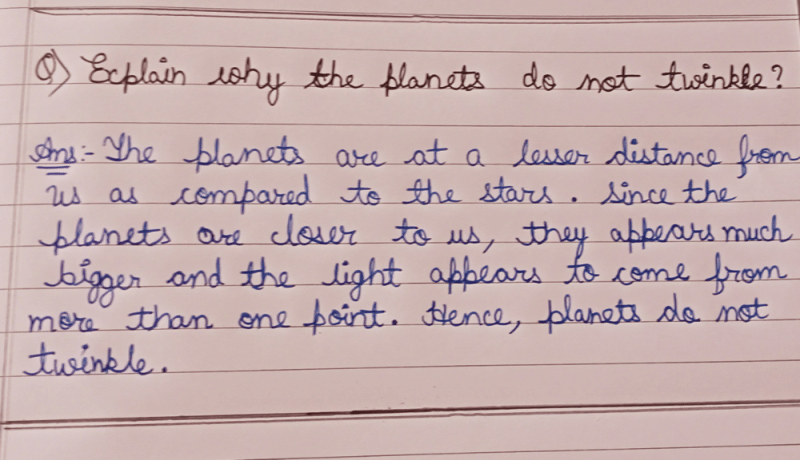 Q) Explain why the planets do not twinkle?
Ans:- The planets are at a lesser distance from
us as compared to the stars. Since the
planets are closer to us, they appears much
bigger and the light appears to come from
more than one point. Hence, planets do not
twinkle.